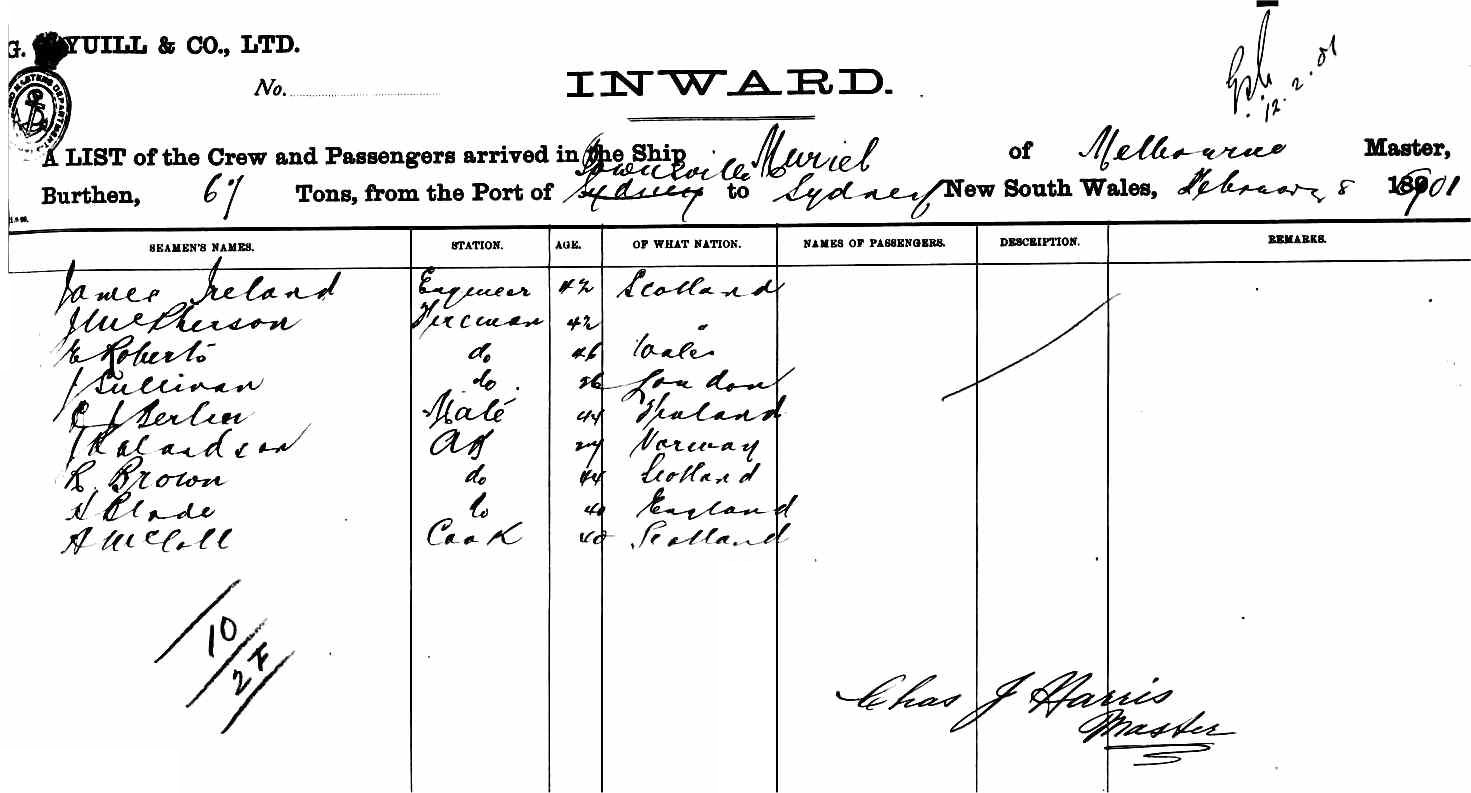 G. YUILL & CO., LTD.
No.
INWARD.
12.2.01
A LIST of the Crew and Passengers arrived in the Ship Muriel of Melbourne Master,
Burthen, 67 Tons, from the Port of Sydney Townsville to Sydney New South Wales, February 8 1901
SEAMEN'S NAMES. STATION. AGE. OF WHAT NATION. NAMES OF PASSENGERS. DESCRIPTION. REMARKS.
James Ireland Engineer 42 Scotland
J McPherson Fireman 42 "
E Roberts do 46 Wales
J Sullivan do. 26 London
Mate 44
AB 27 Norway
R. Brown do 44 Scotland
do 40 England
A McColl Cook 40 Scotland
10
27
Chas J Harris
Master